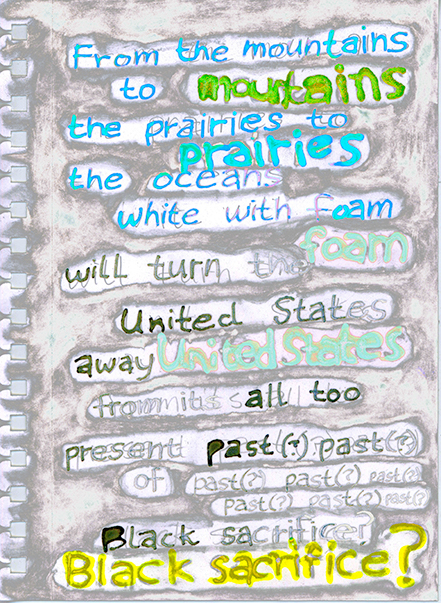 From the mountains
to mountains
the prairies to
prairies
the oceans
white with foam
foam
will turn the
United States
away United States
from its all too
present past(?) past(?)
of past(?) past(?) past(?)
past(?) past(?) past(?)
Black sacrifice?
Black sacrifice?